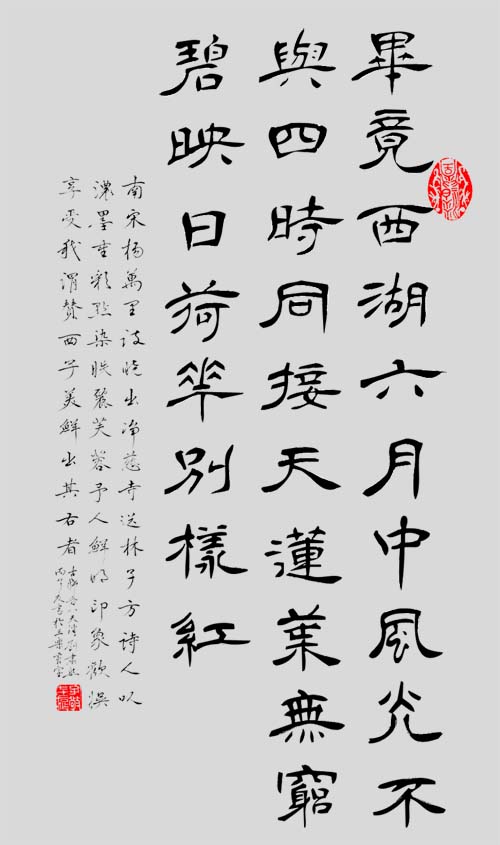 畢竟西湖六月中風光不
與四時同接天蓮葉無窮
碧映日荷華別樣紅
南宋楊萬里詩曉出淨慈寺送林子方詩人以
濃墨重彩點染映麗芙蓉予人鮮明印象欲娛
享受我謂贊西子美鮮出其右者